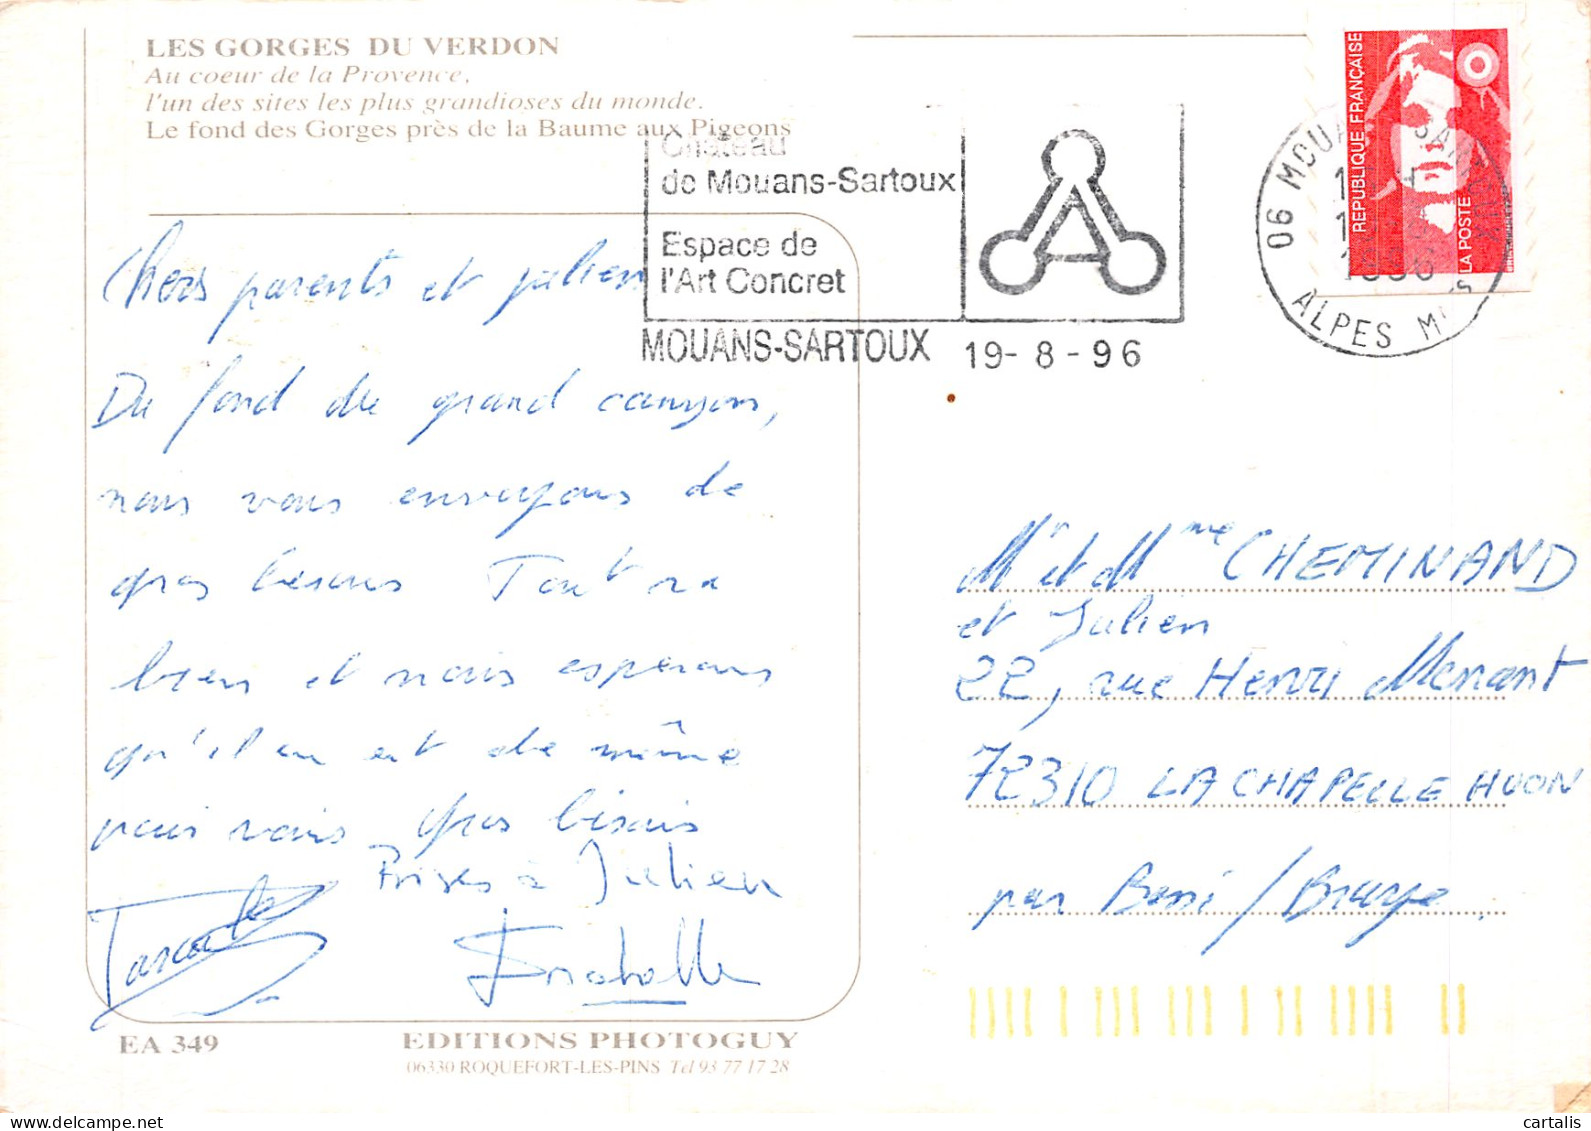 LES GORGES DU VERDON
Au coeur de la Provence,
l'un des sites les plus grandioses du monde.
Le fond des Gorges près de la Baume aux Pigeons
Château
de Mouans-Sartoux
Espace de
l'Art Concret
MOUANS-SARTOUX 19-8-96
REPUBLIQUE FRANÇAISE
LA POSTE
06 MOUA
ALPES M
Chers parents et julien
Du fond du grand canyon,
nous vous envoyons de
gros bisous Tout va
bien et nous esperons
qu'il en est de même
pour vous Gros bisous
à Julien
Mr et Mme CHEMINAND
et Julien
22, rue Henri
72310 LA CHAPELLE HUON
par Bessé / Braye
EA 349
EDITIONS PHOTOGUY
06330 ROQUEFORT-LES-PINS Tél 93 77 17 28
cartalis